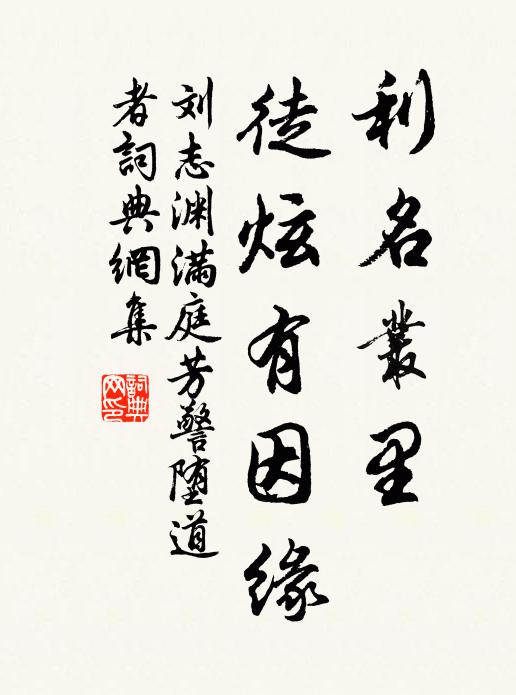 利名叢里
徒炫有因緣
刘志渊满庭芳警堕道
者詞典網集
詞典網印